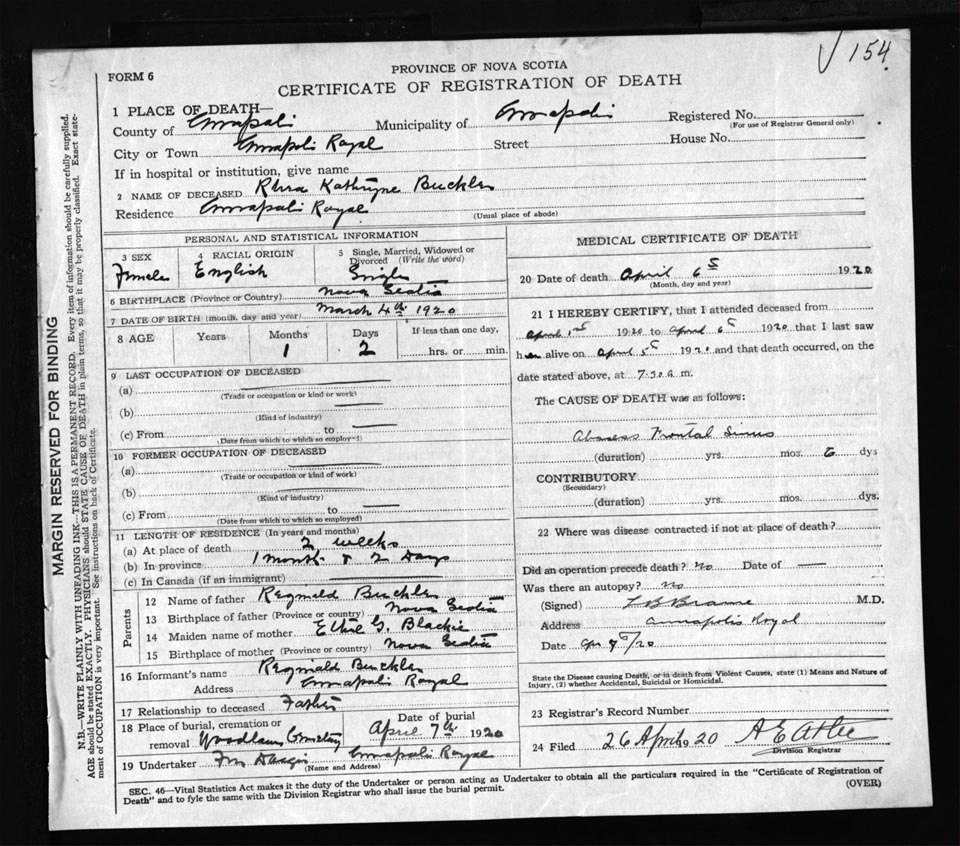 √ 154.
PROVINCE OF NOVA SCOTIA
FORM 6
CERTIFICATE OF REGISTRATION OF DEATH
1 PLACE OF DEATH—
County of Annapolis Municipality of Annapolis Registered No.
(For use of Registrar General only)
City or Town Annapolis Royal Street House No.
If in hospital or institution, give name
2 NAME OF DECEASED Kathryne Buckler
Residence Annapolis Royal (Usual place of abode)
PERSONAL AND STATISTICAL INFORMATION
3 SEX 4 RACIAL ORIGIN 5 Single, Married, Widowed or Divorced (Write the word)
Female English Single
6 BIRTHPLACE (Province or Country) Nova Scotia
7 DATE OF BIRTH (month, day and year) March 4th 1920
8 AGE Years Months Days If less than one day,
1 2 hrs. or min.
9 LAST OCCUPATION OF DECEASED
(a)
(Trade or occupation or kind or work)
(b)
(Kind of industry)
(c) From to
(Date from which to which so employed)
10 FORMER OCCUPATION OF DECEASED
(a)
(Trade or occupation or kind of work)
(b)
(Kind of industry)
(c) From to
(Date from which to which so employed)
11 LENGTH OF RESIDENCE (In years and months)
(a) At place of death 2 weeks
(b) In province 1 month & 2 Days
(c) In Canada (if an immigrant)
Parents
12 Name of father Reginald Buckler
13 Birthplace of father (Province or country) Nova Scotia
14 Maiden name of mother G. Blackie
15 Birthplace of mother (Province or country) Nova Scotia
16 Informant's name Reginald Buckler
Address Annapolis Royal
17 Relationship to deceased Father
18 Place of burial, cremation or removal Woodlawn Cemetery
Date of burial
April 7th 1920
19 Undertaker Annapolis Royal
(Name and Address)
MEDICAL CERTIFICATE OF DEATH
20 Date of death April 6th 1920
(Month, day and year)
21 I HEREBY CERTIFY, that I attended deceased from
April 1st 1920 to April 6th 1920 that I last saw
her alive on April 5th 1920 and that death occurred, on the
date stated above, at 7.30 a m.
The CAUSE OF DEATH was as follows:
Abscess Frontal Sinus
(duration) yrs. mos. 6 dys
CONTRIBUTORY
(Secondary)
(duration) yrs. mos. dys.
22 Where was disease contracted if not at place of death?
Did an operation precede death? no Date of —
Was there an autopsy? no
(Signed) M.D.
Address Annapolis Royal
Date
State the Disease causing Death, or in death from Violent Causes, state (1) Means and Nature of
Injury, (2) whether Accidental, Suicidal or Homicidal.
23 Registrar's Record Number
24 Filed 26 April 1920 A E Atlee
Division Registrar
SEC. 46—Vital Statistics Act makes it the duty of the Undertaker or person acting as Undertaker to obtain all the particulars required in the "Certificate of Registration of
Death" and to fyle the same with the Division Registrar who shall issue the burial permit.
(OVER)
MARGIN RESERVED FOR BINDING
N.B.—WRITE PLAINLY WITH UNFADING INK—THIS IS A PERMANENT RECORD. Every item of information should be carefully supplied.
AGE should be stated EXACTLY. PHYSICIANS should STATE CAUSE OF DEATH in plain terms, so that it may be properly classified. Exact state-
ment of OCCUPATION is very important. See instructions on back of Certificate.